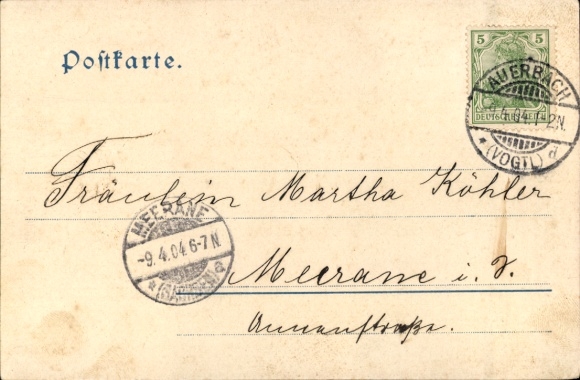 Postkarte.
5 5
DEUTSCHES REICH
AUERBACH
9.4.04.1-2N.
* (VOGTL) d
Fräulein Martha Köhler
MEERANE
-9.4.04.6-7N
* (SACHSEN) a
Meerane i. S.
Annenstraße.